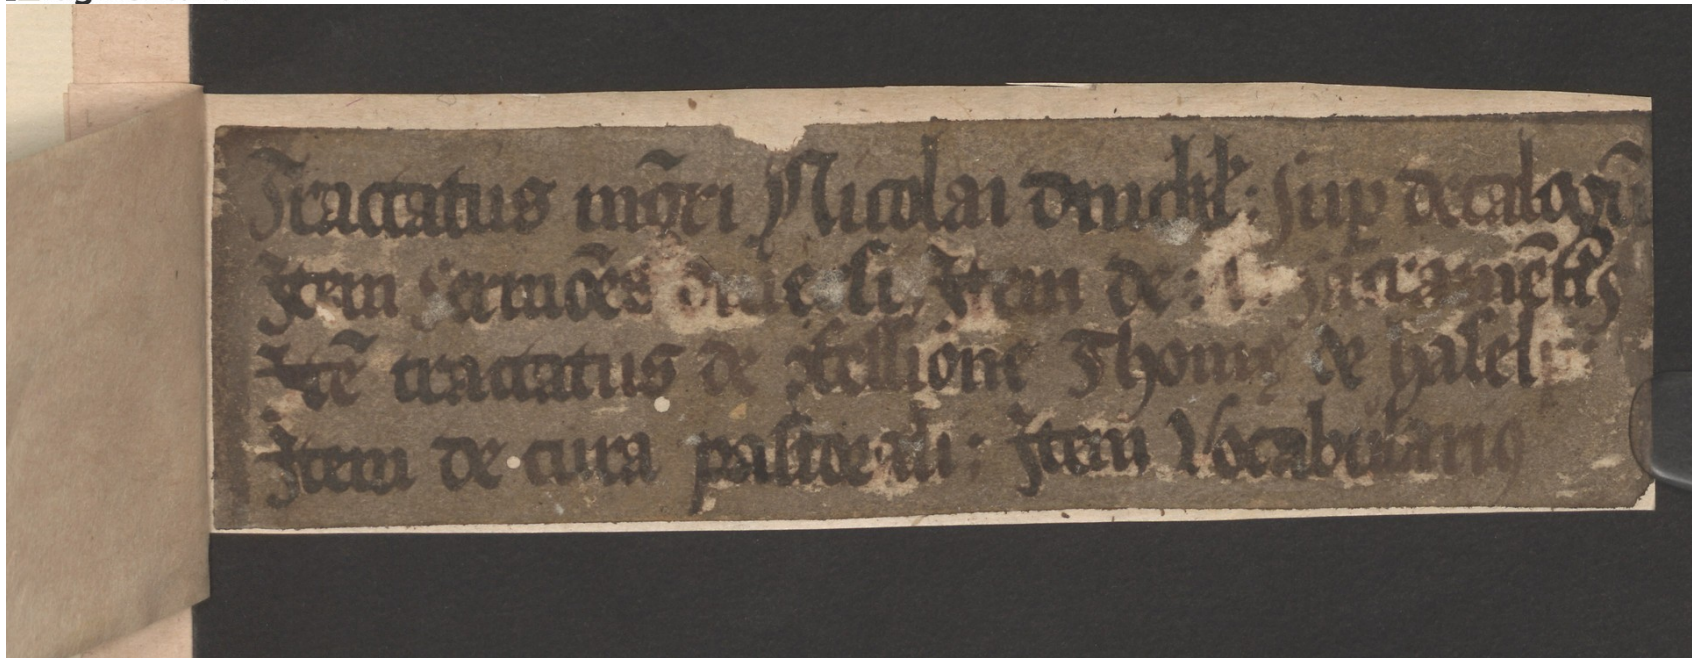 Tractatus mgri̅ Nicolai dinckl̅: sup decalogū
Item sermōes de li. Item de: sacramētis
Itē tractatus de ꝯfessione Thome de hasel
Item de cura pastorali: Item Vocabularius